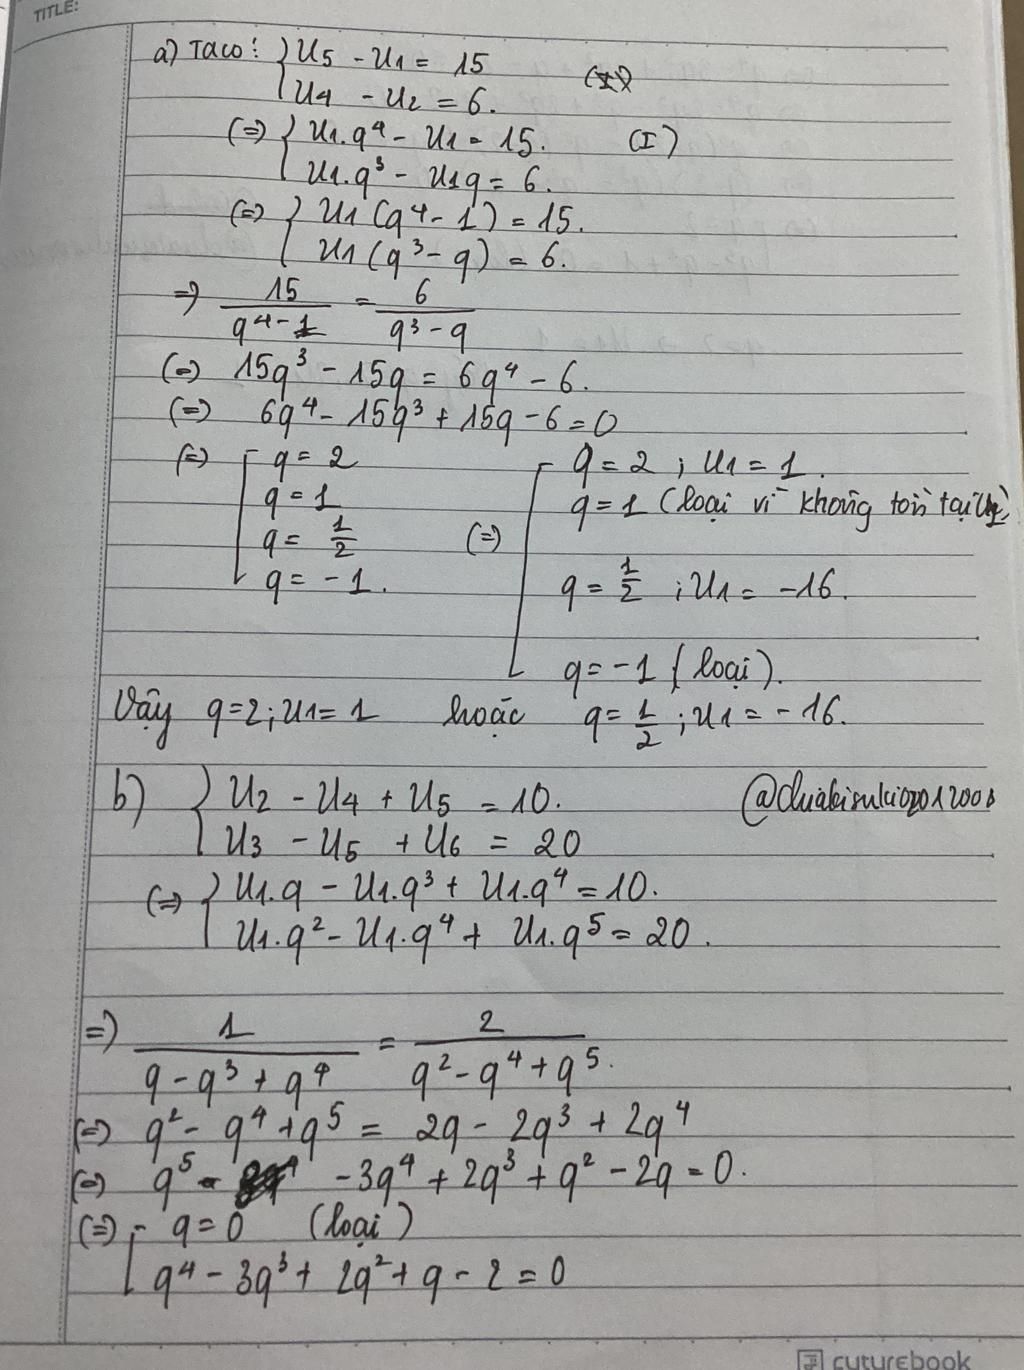 TITLE:
a) Taco: { U5 - U1 = 15
U4 - U2 = 6.
(=) { U1.q⁴ - U1 = 15. (I)
U1.q³ - U1q = 6.
(=) { U1 (q⁴ - 1) = 15.
U1 (q³ - q) = 6.
=) 15/(q⁴ - 1) = 6/(q³ - q)
(=) 15q³ - 15q = 6q⁴ - 6.
(=) 6q⁴ - 15q³ + 15q - 6 = 0
(=) [ q = 2
q = 1
q = 1/2
q = -1.
(=) [ q = 2 ; U1 = 1.
q = 1 (loại vì không tồn tại U1)
q = 1/2 ; U1 = -16.
q = -1 (loại).
Vậy q=2; U1 = 1 hoặc q = 1/2 ; U1 = -16.
b) { U2 - U4 + U5 = 10.
U3 - U5 + U6 = 20
(=) { U1.q - U1.q³ + U1.q⁴ = 10.
U1.q² - U1.q⁴ + U1.q⁵ = 20.
=) 1/(q - q³ + q⁴) = 2/(q² - q⁴ + q⁵).
(=) q² - q⁴ + q⁵ = 2q - 2q³ + 2q⁴
(=) q⁵ - 3q⁴ + 2q³ + q² - 2q = 0.
(=) [ q = 0 (loại)
q⁴ - 3q³ + 2q² + q - 2 = 0
cuturebook